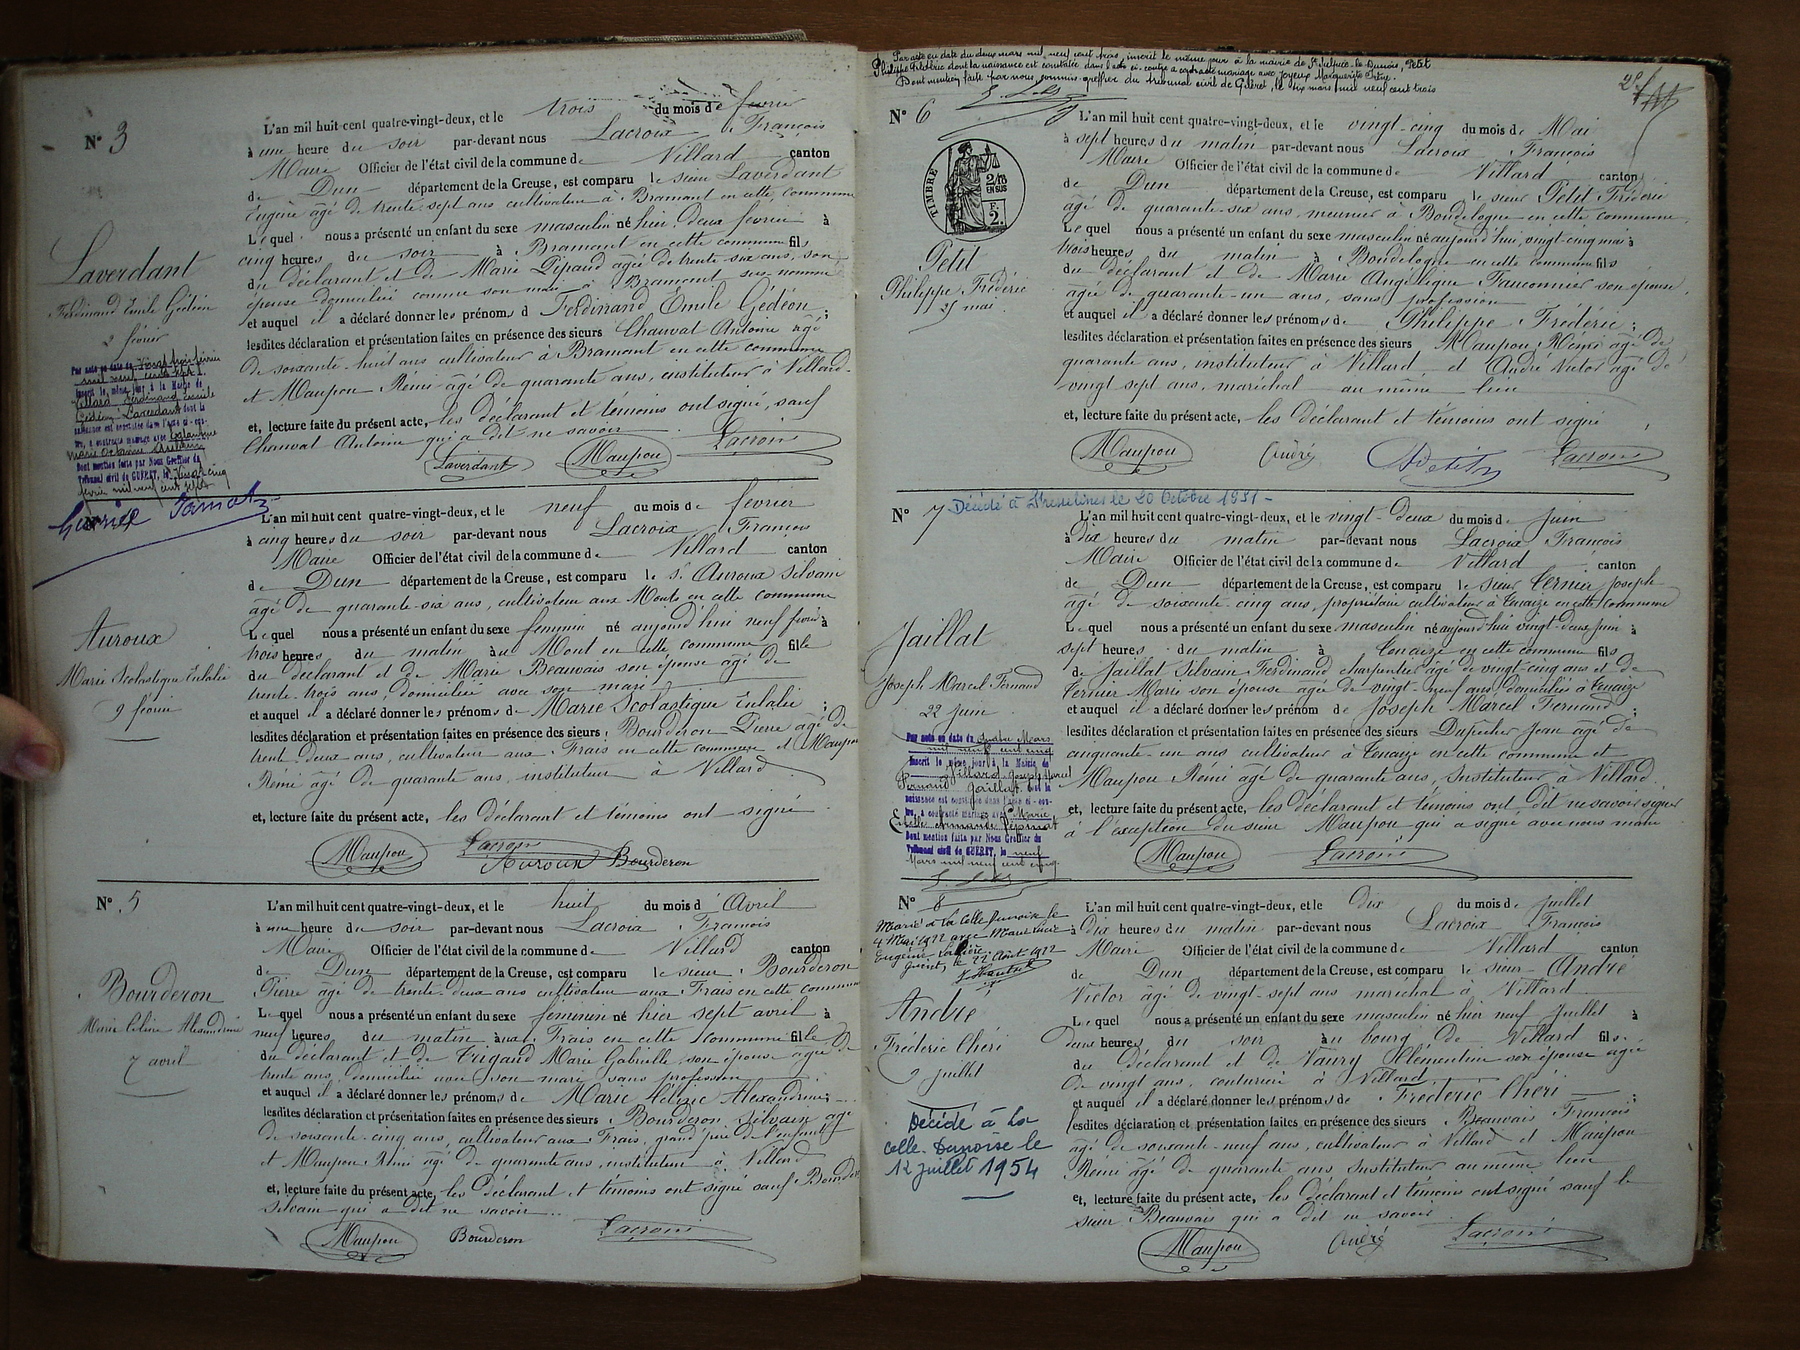 N° 3
L'an mil huit cent quatre-vingt-deux, et le trois du mois de février
à une heure du soir par-devant nous Lacroix François
Maire Officier de l'état civil de la commune de Villard canton
de Dun département de la Creuse, est comparu le sieur Laverdant
Eugène âgé de trente-sept ans cultivateur à Bramant en cette commune
Lequel nous a présenté un enfant du sexe masculin né hier deux février à
cinq heures du soir à Bramant en cette commune fils
du déclarant et de Marie Pipaud agée de trente six ans, son
épouse domiciliée comme son mari à Bramant sus-nommé
et auquel il a déclaré donner les prénoms d Ferdinand Emile Gédéon ;
lesdites déclaration et présentation faites en présence des sieurs Chauvat Antoine agé
de soixante-huit ans cultivateur à Bramant en cette commune
et Maupou Rémi âgé de quarante ans, instituteur à Villard.
et, lecture faite du présent acte, les déclarant et témoins ont signé, sauf
Chauvat Antoine qui a dit ne savoir
Laverdant Maupou Lacroix
Laverdant
Ferdinand Emile Gédéon
2 février
Par acte en date du vingt trois février
mil neuf cent sept
inscrit le même jour à la Mairie de
Villard Ferdinand Emile
Gédéon Laverdant dont la
naissance est constatée dans l'acte ci-con-
tre, a contracté mariage avec
Marie
Dont mention faite par Nous Greffier du
Tribunal civil de GUÉRET, le vingt cinq
février mil neuf cent sept
L'an mil huit cent quatre-vingt-deux, et le neuf du mois de février
à cinq heures du soir par-devant nous Lacroix François
Maire Officier de l'état civil de la commune de Villard canton
de Dun département de la Creuse, est comparu le sr Auroux Silvain
âgé de quarante-six ans, cultivateur aux Monts en cette commune
Lequel nous a présenté un enfant du sexe feminin né aujourd'hui neuf février à
trois heures du matin au Mont en cette commune fille
du déclarant et de Marie Beauvais son épouse âgé de
trente-trois ans, domiciliée avec son mari
et auquel il a déclaré donner les prénoms de Marie Scolastique Eulalie ;
lesdites déclaration et présentation faites en présence des sieurs Bourderon Pierre agé de
trent deux ans, cultivateur aux Frais en cette commune et Maupou
Rémi âgé de quarante ans, instituteur à Villard
et, lecture faite du présent acte, les déclarant et témoins ont signé
Maupou Lacroix Auroux Bourderon
Auroux
Marie Scholastique Eulalie
9 février
N° 5
L'an mil huit cent quatre-vingt-deux, et le huit du mois d'Avril
à une heure du soir par-devant nous Lacroix François
Maire Officier de l'état civil de la commune de Villard canton
de Dun département de la Creuse, est comparu le sieur Bourderon
Pierre âgé de trente-deux ans cultivateur aux Frais en cette commune
Lequel nous a présenté un enfant du sexe féminin né hier sept avril à
neuf heures du matin aux Frais en cette commune fille
du déclarant et de Trigaud Marie Gabrielle son épouse âgée de
trente ans, domiciliée avec son mari sans profession
et auquel il a déclaré donner les prénoms de Marie Céline Alexandrine
lesdites déclaration et présentation faites en présence des sieurs Bourderon Silvain âgé
de soixante-cinq ans, cultivateur aux Frais, grand'père de l'enfant
et Maupou Rémi âgé de quarante ans, instituteur à Villard
et, lecture faite du présent acte, les déclarant et témoins ont signé sauf
Silvain qui a dit ne savoir
Maupou Bourderon Lacroix
Bourderon
Marie Céline Alexandrine
7 avril
Par acte en date du deux mars mil neuf cent trois, inscrit le même jour à la mairie de St Sulpice-le-Dunois, Petit
Philippe Frédéric dont la naissance est constatée dans l'acte ci-contre a contracté mariage avec Joyeux Marguerite
Dont mention faite par nous commis-greffier du tribunal civil de Guéret, le six mars mil neuf cent trois
N° 6
L'an mil huit cent quatre-vingt-deux, et le vingt-cinq du mois de Mai
à sept heures du matin par-devant nous Lacroix François
Maire Officier de l'état civil de la commune de Villard canton
de Dun département de la Creuse, est comparu le sieur Petit Frédéric
âgé de quarante-six ans, meunier à Boudelogne en cette commune
Lequel nous a présenté un enfant du sexe masculin né aujourd'hui, vingt-cinq mai à
trois heures du matin à Boudelogne en cette commune fils
du déclarant et de Marie Angélique Fauconnier son épouse,
agée de quarante-un ans, sans profession
et auquel il a déclaré donner les prénoms de Philippe Frédéric ;
lesdites déclaration et présentation faites en présence des sieurs Maupou Rémi âgé de
quarante ans, instituteur à Villard, et André Victor âgé de
vingt sept ans, maréchal au même lieu
et, lecture faite du présent acte, les déclarant et témoins ont signé
Maupou André Petit Lacroix
TIMBRE
2/10
EN SUS
F.
2.
Petit
Philippe Frédéric
25 mai
N° 7 Décédé à Fresselines le 20 Octobre 1951 -
L'an mil huit cent quatre-vingt-deux, et le vingt-deux du mois de Juin
à dix heures du matin par-devant nous Lacroix François
Maire Officier de l'état civil de la commune de Villard canton
de Dun département de la Creuse, est comparu le sieur Cernier Joseph
âgé de soixante-cinq ans, propriétaire cultivateur à Tenaize en cette commune
Lequel nous a présenté un enfant du sexe masculin né aujourd'hui vingt-deux juin à
sept heures du matin à Tenaize en cette commune fils
de Jaillat Silvain Ferdinand charpentier âgé de vingt-cinq ans et de
Cernier Marie son épouse agée de vingt-neuf ans, domiciliés à Tenaize
et auquel il a déclaré donner les prénom de Joseph Marcel Fernand ;
lesdites déclaration et présentation faites en présence des sieurs Dufucher Jean âgé de
cinquante-un ans cultivateur à Tenaize en cette commune et
Maupou Rémi âgé de quarante ans, Instituteur à Villard
et, lecture faite du présent acte, les déclarant et témoins ont dit ne savoir signer
à l'exception du sieur Maupou qui a signé avec nous maire
Maupou Lacroix
Jaillat
Joseph Marcel Fernand
22 juin
Par acte en date du quatre Mars
mil neuf cent cinq
inscrit le même jour à la Mairie de
Villard, Joseph Marcel
Fernand Jaillat dont la
naissance est constatée dans l'acte ci-con-
tre, a contracté mariage avec Marie
Dont mention faite par Nous Greffier du
Tribunal civil de GUÉRET, le neuf
Mars mil neuf cent cinq
N° 8
Marié à La Celle Dunoise le
4 Mai 1922 avec
Eugénie
Guéret, le 22 Août 1922
L'an mil huit cent quatre-vingt-deux, et le dix du mois de juillet
à dix heures du matin par-devant nous Lacroix François
Maire Officier de l'état civil de la commune de Villard canton
de Dun département de la Creuse, est comparu le sieur André
Victor âgé de vingt-sept ans maréchal à Villard
Lequel nous a présenté un enfant du sexe masculin né hier neuf juillet à
deux heures du soir au bourg de Villard fils
du déclarant et de Naury Clémentine son épouse agée
de vingt ans, couturière à Villard
et auquel il a déclaré donner les prénoms de Frédéric Chéri ;
lesdites déclaration et présentation faites en présence des sieurs Beauvais François
âgé de soixante-neuf ans, cultivateur à Villard et Maupou
Rémi âgé de quarante ans Instituteur au même lieu
et, lecture faite du présent acte, les déclarant et témoins ont signé sauf le
sieur Beauvais qui a dit ne savoir
Maupou André Lacroix
André
Frédéric Chéri
9 juillet
Décédé à La
Celle-Dunoise le
12 juillet 1954